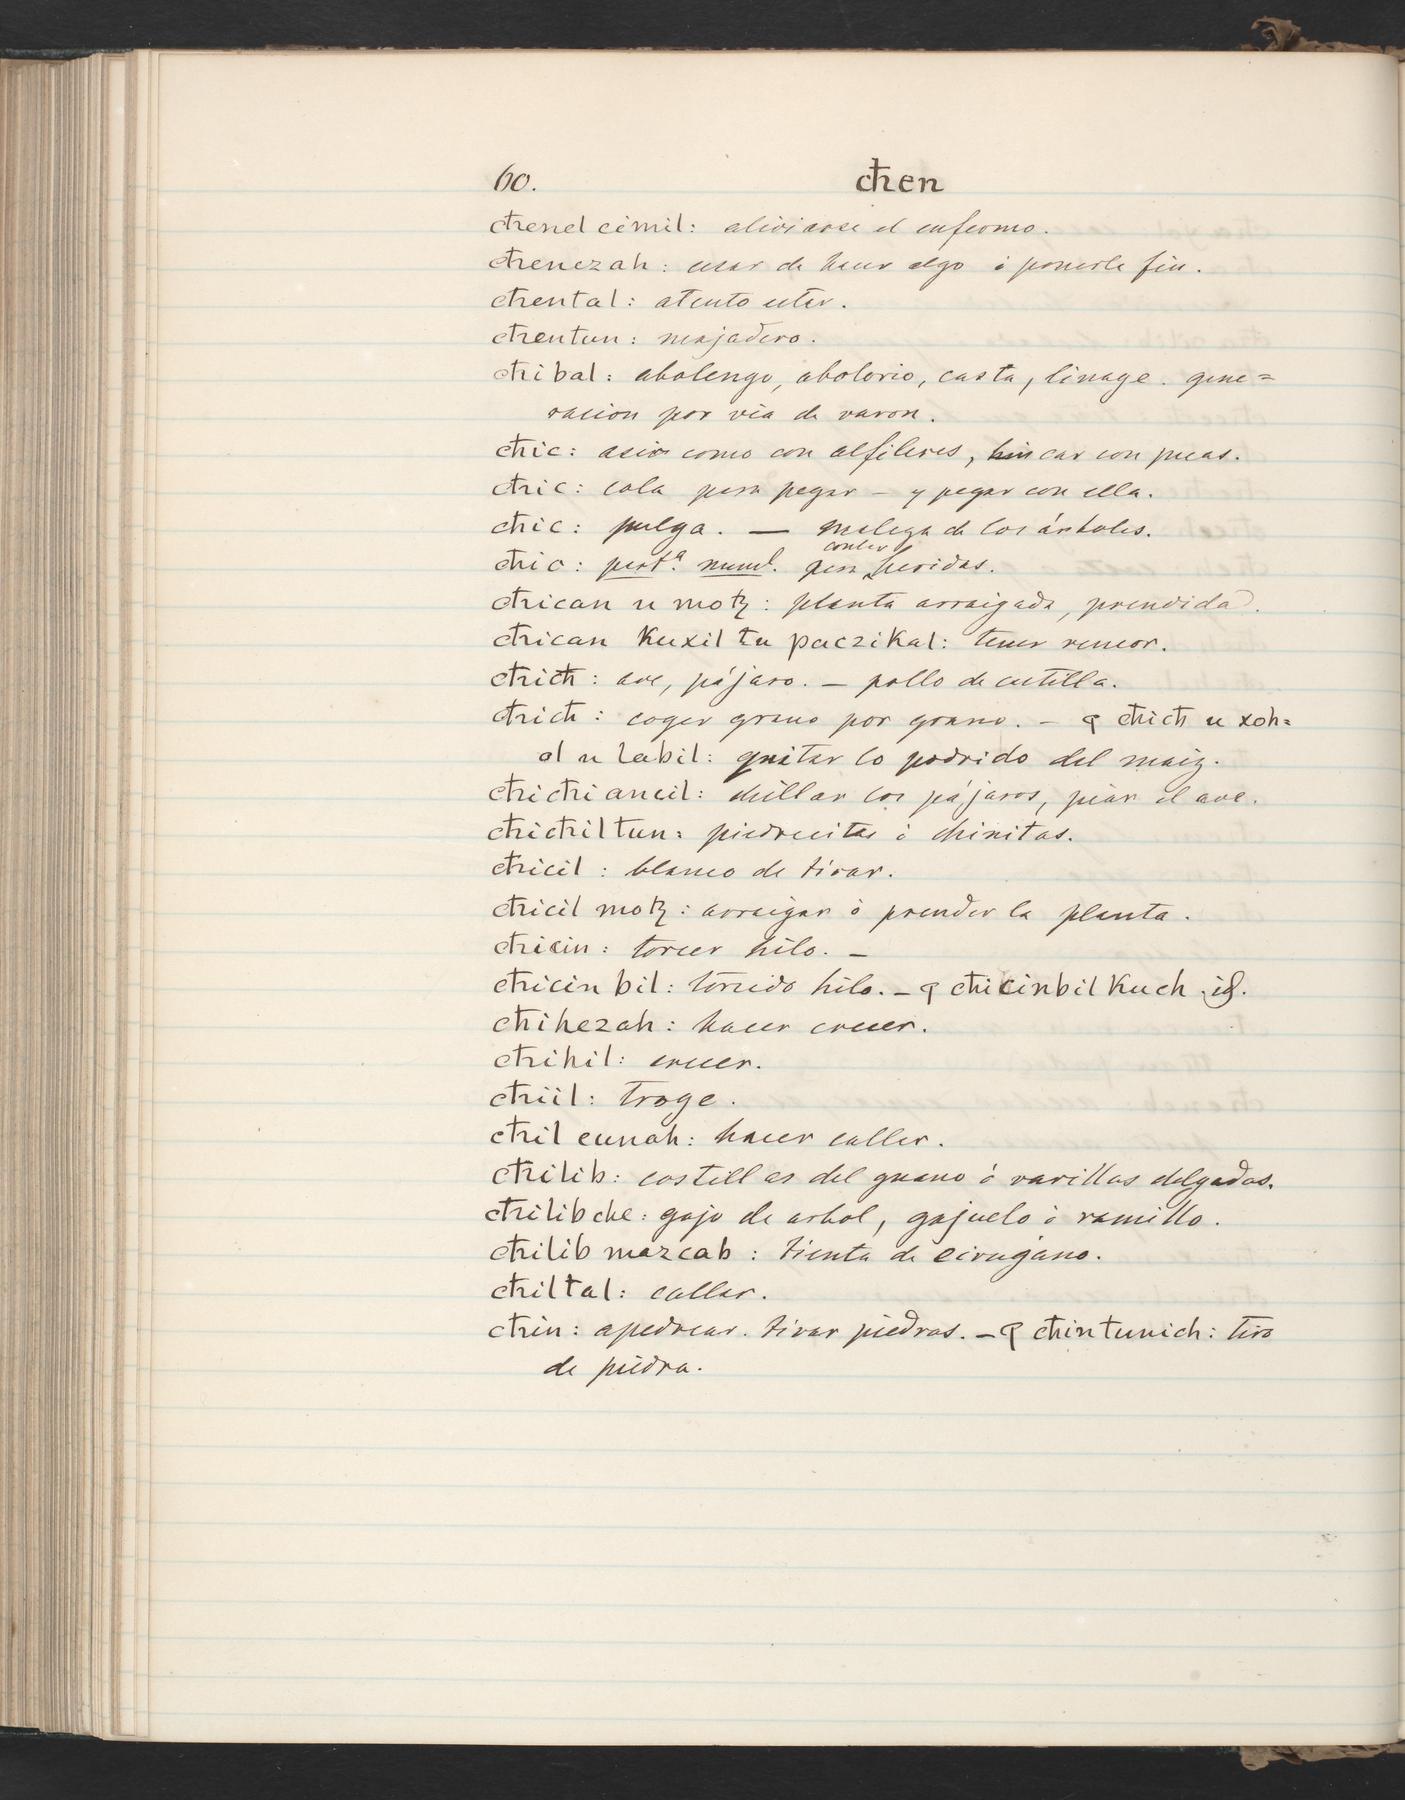 60. cħen
cħenel cimil: aliviarse el enfermo.
cħenezah: cesar de hacer algo ó ponerle fin.
cħental: atento estar.
cħentun: majadero.
cħibal: abolengo, abolorio, casta, linage. gene=
racion por via de varon.
cħic: asir como con alfileres, hincar con puas.
cħic: cola para pegar – y pegar con ella.
cħic: pulga. — malega de los árboles.
cħic: partª. numl. para contar heridas.
cħican u moꜩ: planta arraigada, prendida.
cħican kuxil tu puczikal: tener rencor.
cħicħ: ave, pájaro. – pollo de cutilla.
cħicħ: coger grano por grano. – ꝗ cħicħ u xoh=
ol u labil: quitar lo podrido del maiz.
cħicħiancil: chillar los pájaros, piar el ave.
cħicħiltun: piedrecitas ó chinitas.
cħicil: blanco de tirar.
cħicil moꜩ: arraigar ó prender la planta.
cħicin: torcer hilo. –
cħicin bil: torcido hilo. – ꝗ cħicinbil kuch. id.
cħihezah: hacer crecer.
cħihil: crecer.
cħiil: troge.
cħil cunah: hacer callar.
cħilib: costillas del guano ó varillas delgadas.
cħilib che: gajo de arbol, gajuelo ó ramillo.
cħilib mazcab: tienta de cirugano.
cħiltal: callar.
cħin: apedrear. tirar piedras. – ꝗ cħintunich: tiro
de piedra.